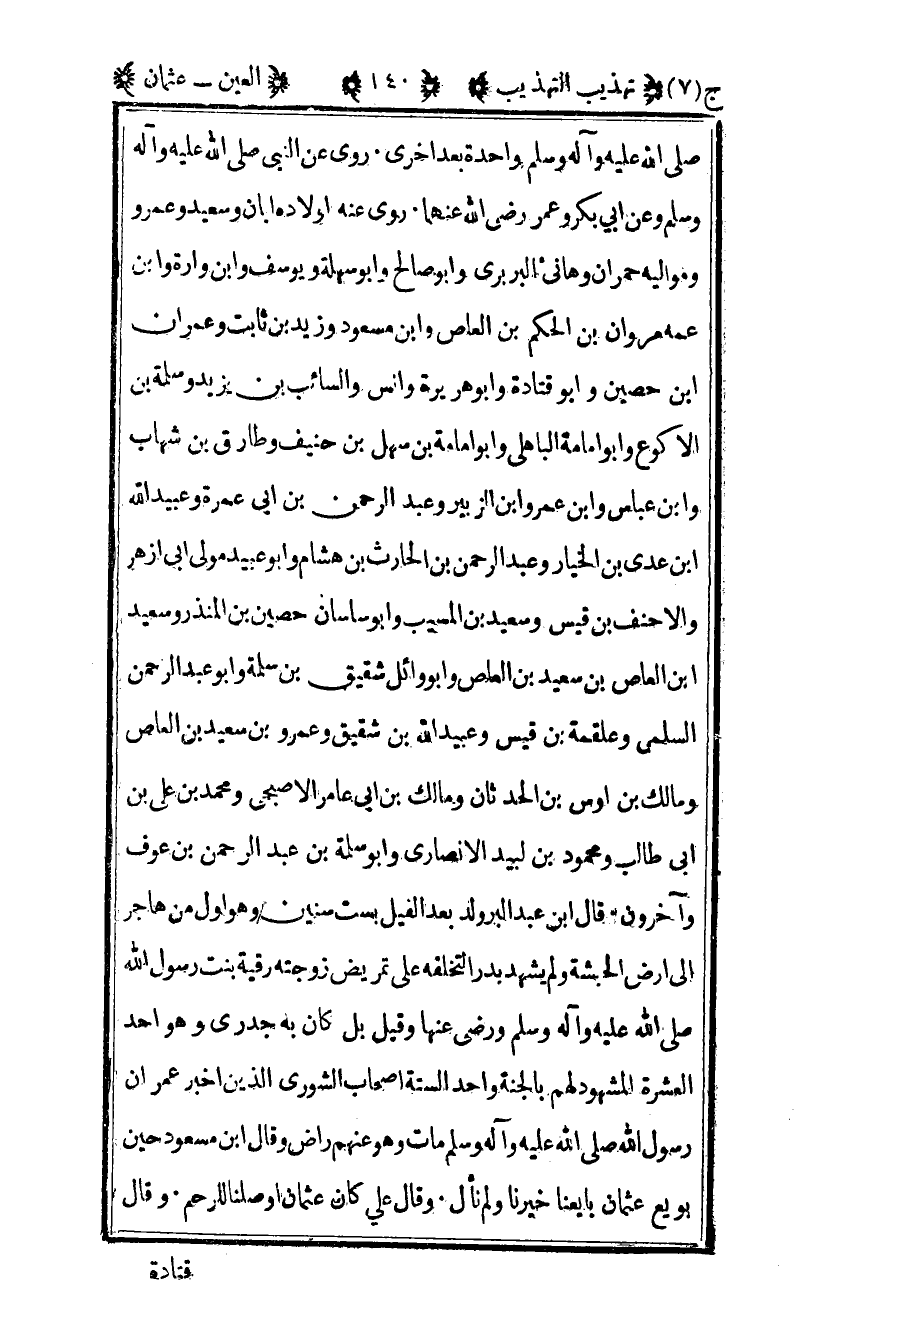 ج(٧) تهذيب التهذيب ١٤٠ العين – عثمان
صلى الله عليه وآله وسلم واحدة بعد اخرى · روى عن النبي صلى الله عليه وآله
وسلم وعن ابي بكر وعمر رضى الله عنهما · روى عنه اولاده ابان وسعيد وعمرو
ومواليه حمران وهانئ البربرى وابو صالح وابو سهلة ويوسف وابن وارة وابن
عمه مروان بن الحكم بن العاص وابن مسعود وزيد بن ثابت وعمران
ابن حصين و ابو قتادة وابو هريرة وانس والسائب بن يزيد وسلمة بن
الاكوع وابو امامة الباهلى وابو امامة بن سهل بن حنيف وطارق بن شهاب
وابن عباس وابن عمر وابن الزبير وعبد الرحمن بن ابى عمرة وعبيد الله
ابن عدى بن الخيار وعبد الرحمن بن الحارث بن هشام وابو عبيد مولى ابى ازهر
والاحنف بن قيس وسعيد بن المسيب وابو ساسان حصين بن المنذر وسعيد
ابن العاص بن سعيد بن العاص وابو وائل شقيق بن سلمة وابو عبد الرحمن
السلمى وعلقمة بن قيس وعبيد الله بن شقيق وعمرو بن سعيد بن العاص
ومالك بن اوس بن الحدثان ومالك بن ابي عامر الاصبحى ومحمد بن علي بن
ابى طالب ومحمود بن لبيد الانصارى وابو سلمة بن عبد الرحمن بن عوف
وآخرون · قال ابن عبد البر ولد بعد الفيل بست سنين وهو اول من هاجر
الى ارض الحبشة ولم يشهد بدرا لتخلفه على تمريض زوجته رقية بنت رسول الله
صلى الله عليه وآله وسلم ورضى عنها وقيل بل كان به جدرى و هو احد
العشرة المشهود لهم بالجنة واحد الستة اصحاب الشورى الذين اخبر عمر ان
رسول الله صلى الله عليه وآله وسلم مات وهو عنهم راض وقال ابن مسعود حين
بويع عثمان بايعنا خيرنا ولم نأل · وقال علي كان عثمان اوصلنا للرحم · و قال
قتادة